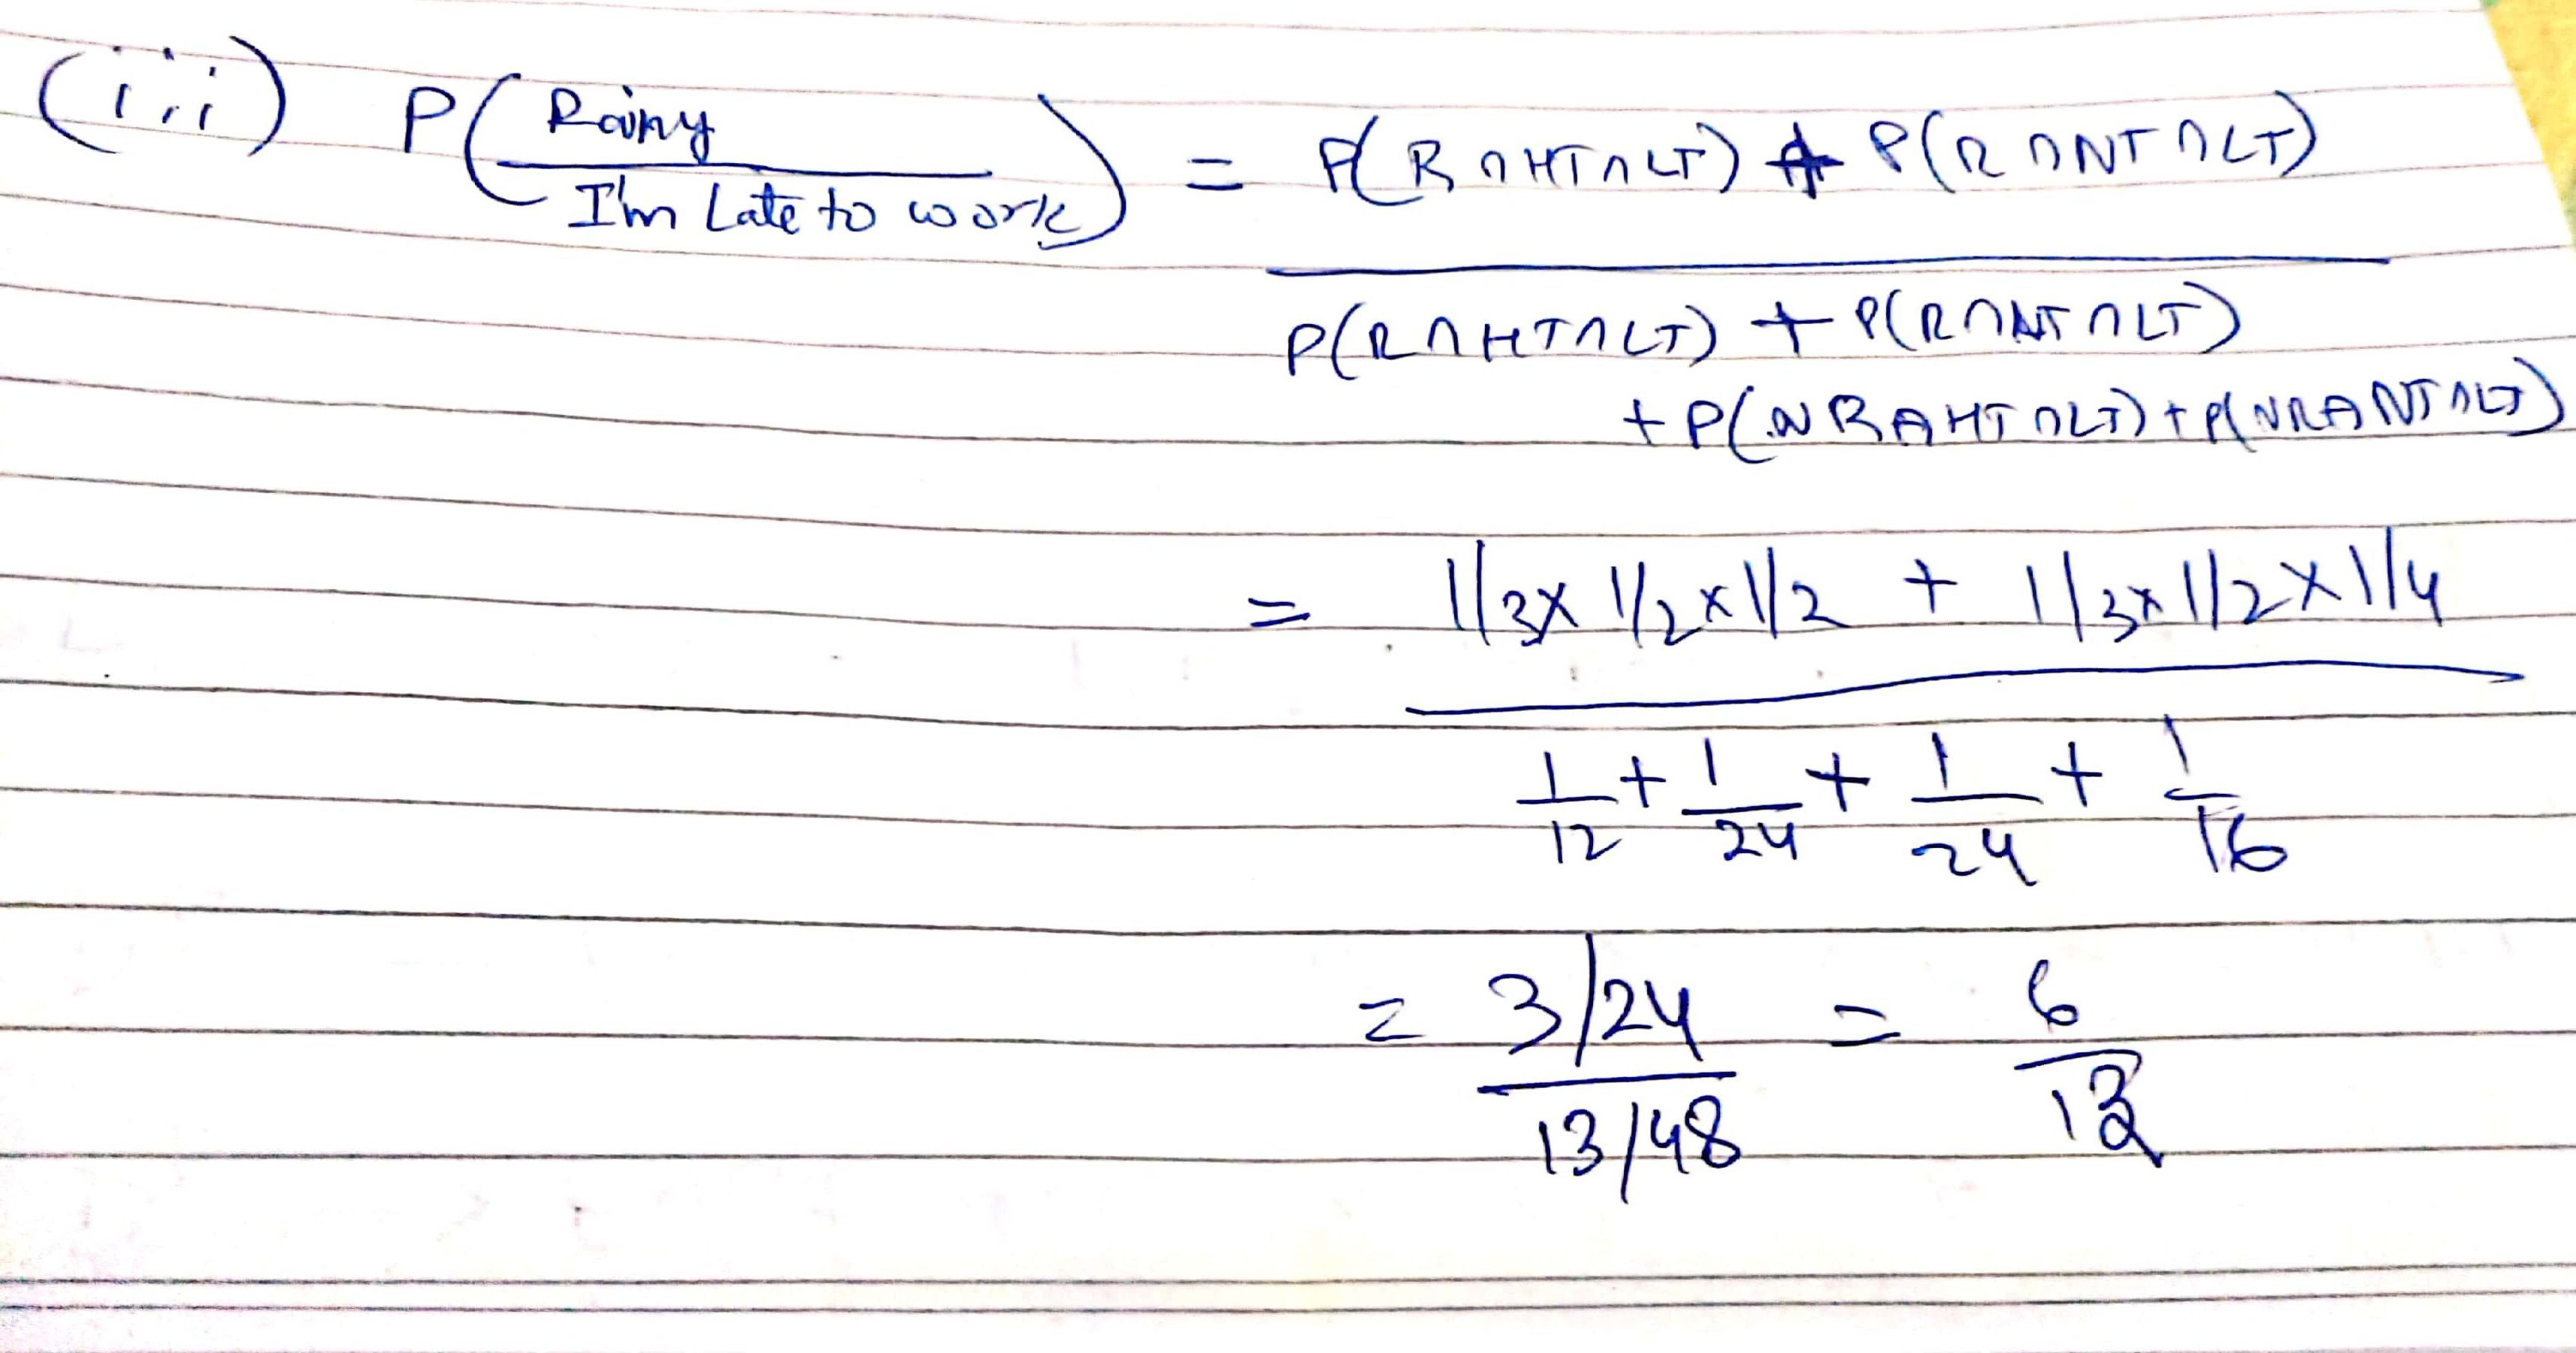 (iii) P(Rainy / I'm Late to work) = P(R∩HT∩LT) + P(R∩NT∩LT)
P(R∩HT∩LT) + P(R∩NT∩LT)
+ P(NR∩HT∩LT) + P(NR∩NT∩LT)
= 1/3 x 1/2 x 1/2 + 1/3 x 1/2 x 1/4
1/12 + 1/24 + 1/24 + 1/16
= 3/24 / 13/48 = 6/13